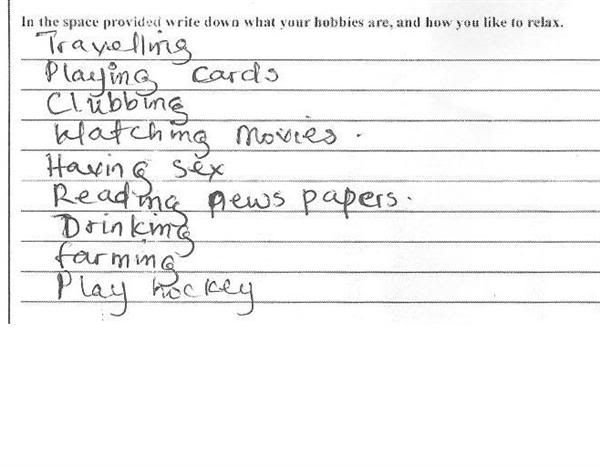 In the space provided write down what your hobbies are, and how you like to relax.
Travelling
Playing cards
Clubbing
Watching movies.
Having sex
Reading news papers.
Drinking
farming
Play hockey